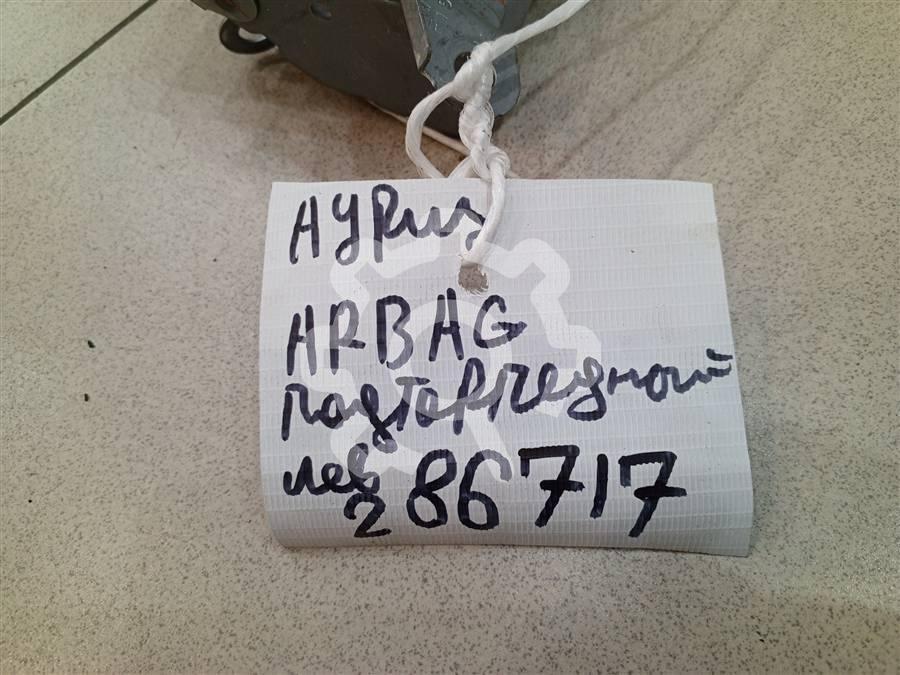 АУРИS
ARBAG
подторпедной
лев
286717